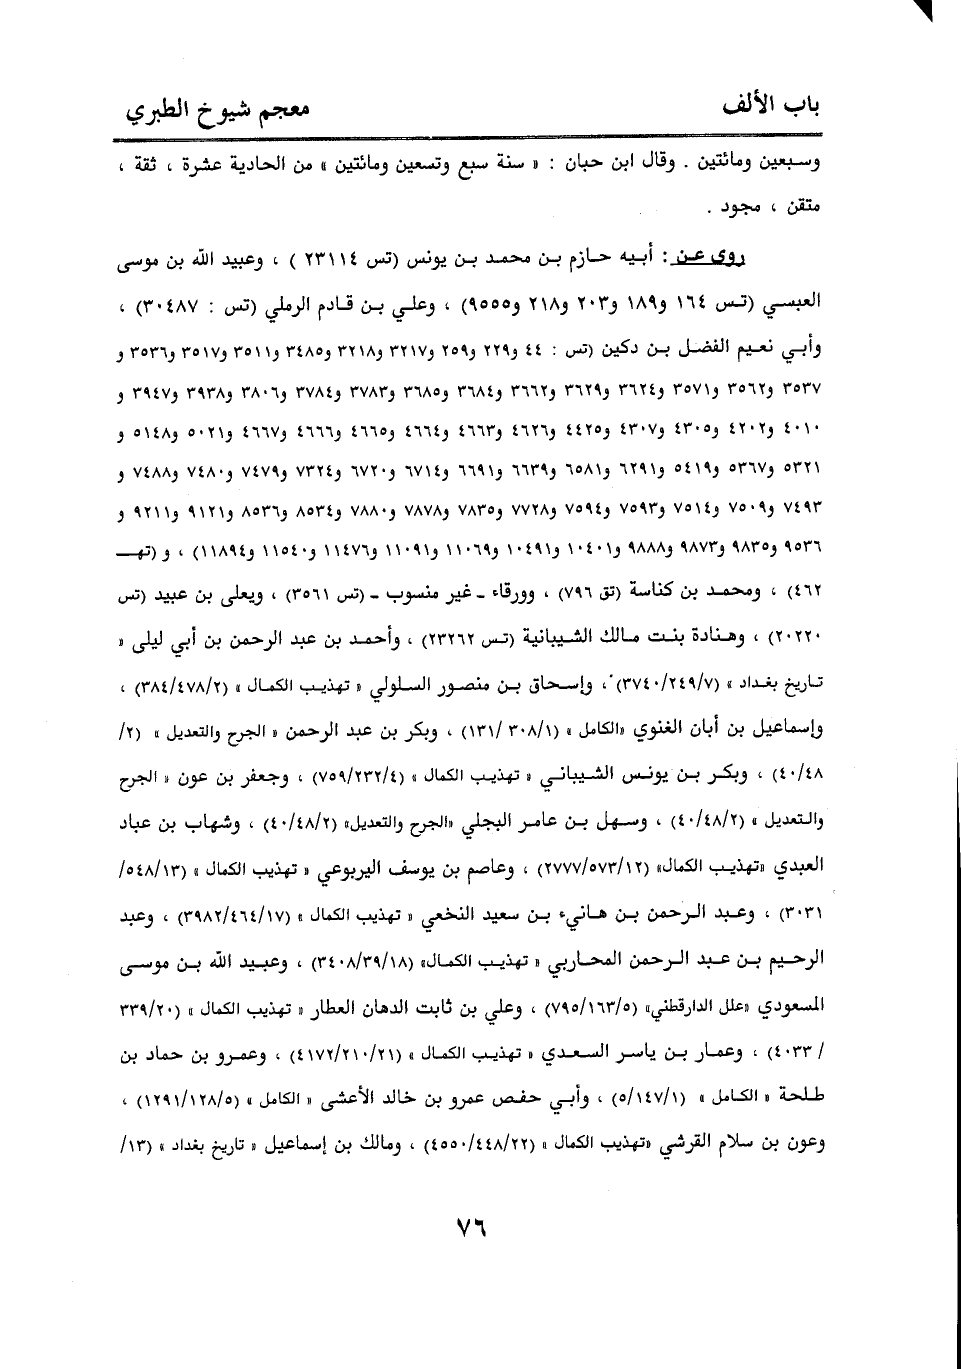 باب الألف
معجم شيوخ الطبري
وسبعين ومائتين . وقال ابن حبان : « سنة سبع وتسعين ومائتين » من الحادية عشرة ، ثقة ،
متقن ، مجود .
روى عن : أبيه حازم بن محمد بن يونس (تس ٢٣١١٤ ) ، وعبيد الله بن موسى
العبسي (تس ١٦٤ و١٨٩ و٢٠٣ و٢١٨ و٩٥٥٥) ، وعلي بن قادم الرملي (تس : ٣٠٤٨٧) ،
وأبي نعيم الفضل بن دكين (تس : ٤٤ و٢٢٩ و٢٥٩ و٣٢١٧ و٣٢١٨ و٣٤٨٥ و٣٥١١ و٣٥١٧ و٣٥٣٦ و
٣٥٣٧ و٣٥٦٢ و٣٥٧١ و٣٦٢٤ و٣٦٢٩ و٣٦٦٢ و٣٦٨٤ و٣٦٨٥ و٣٧٨٣ و٣٧٨٤ و٣٨٠٦ و٣٩٣٨ و٣٩٤٧ و
٤٠١٠ و٤٢٠٢ و٤٣٠٥ و٤٣٠٧ و٤٤٢٥ و٤٦٢٦ و٤٦٦٣ و٤٦٦٤ و٤٦٦٥ و٤٦٦٦ و٤٦٦٧ و٥٠٢١ و٥١٤٨ و
٥٣٢١ و٥٣٦٧ و٥٤١٩ و٦٢٩١ و٦٥٨١ و٦٦٣٩ و٦٦٩١ و٦٧١٤ و٦٧٢٠ و٧٣٢٤ و٧٤٧٩ و٧٤٨٠ و٧٤٨٨ و
٧٤٩٣ و٧٥٠٩ و٧٥١٤ و٧٥٩٣ و٧٥٩٤ و٧٧٢٨ و٧٨٣٥ و٧٨٧٨ و٧٨٨٠ و٨٥٣٤ و٨٥٣٦ و٩١٢١ و٩٢١١ و
٩٥٣٦ و٩٨٣٥ و٩٨٧٣ و٩٨٨٨ و١٠٤٠١ و١٠٤٩١ و١١٠٦٩ و١١٠٩١ و١١٤٧٦ و١١٥٤٠ و١١٨٩٤) ، و (تهـــ
٤٦٢) ، ومحمد بن كناسة (تق ٧٩٦) ، وورقاء ـ غير منسوب ـ (تس ٣٥٦١) ، ويعلى بن عبيد (تس
٢٠٢٢٠) ، وهنادة بنت مالك الشيبانية (تس ٢٣٢٦٢) ، وأحمد بن عبد الرحمن بن أبي ليلى «
تاريخ بغداد » (٣٧٤٠/٢٤٩/٧) ، وإسحاق بن منصور السلولي « تهذيب الكمال » (٣٨٤/٤٧٨/٢) ،
وإسماعيل بن أبان الغنوي «الكامل » (١٣١/ ٣٠٨/١) ، وبكر بن عبد الرحمن « الجرح والتعديل » (٢/
٤٠/٤٨) ، وبكر بن يونس الشيباني « تهذيب الكمال » (٧٥٩/٢٣٢/٤) ، وجعفر بن عون « الجرح
والتعديل » (٤٠/٤٨/٢) ، وسهل بن عامر البجلي «الجرح والتعديل» (٤٠/٤٨/٢) ، وشهاب بن عباد
العبدي «تهذيب الكمال» (٢٧٧٧/٥٧٣/١٢) ، وعاصم بن يوسف اليربوعي « تهذيب الكمال » (٥٤٨/١٣/
٣٠٣١) ، وعبد الرحمن بن هانيء بن سعيد النخعي « تهذيب الكمال » (٣٩٨٢/٤٦٤/١٧) ، وعبد
الرحيم بن عبد الرحمن المحاربي « تهذيب الكمال» (٣٤٠٨/٣٩/١٨) ، وعبيد الله بن موسى
المسعودي «علل الدارقطني» (٧٩٥/١٦٣/٥) ، وعلي بن ثابت الدهان العطار « تهذيب الكمال » (٣٣٩/٢٠
/ ٤٠٣٣) ، وعمار بن ياسر السعدي « تهذيب الكمال » (٤١٧٢/٢١٠/٢١) ، وعمرو بن حماد بن
طلحة « الكامل » (٥/١٤٧/١) ، وأبي حفص عمرو بن خالد الأعشى « الكامل » (١٢٩١/١٢٨/٥) ،
وعون بن سلام القرشي «تهذيب الكمال » (٤٥٥٠/٤٤٨/٢٢) ، ومالك بن إسماعيل « تاريخ بغداد » (١٣/
٧٦